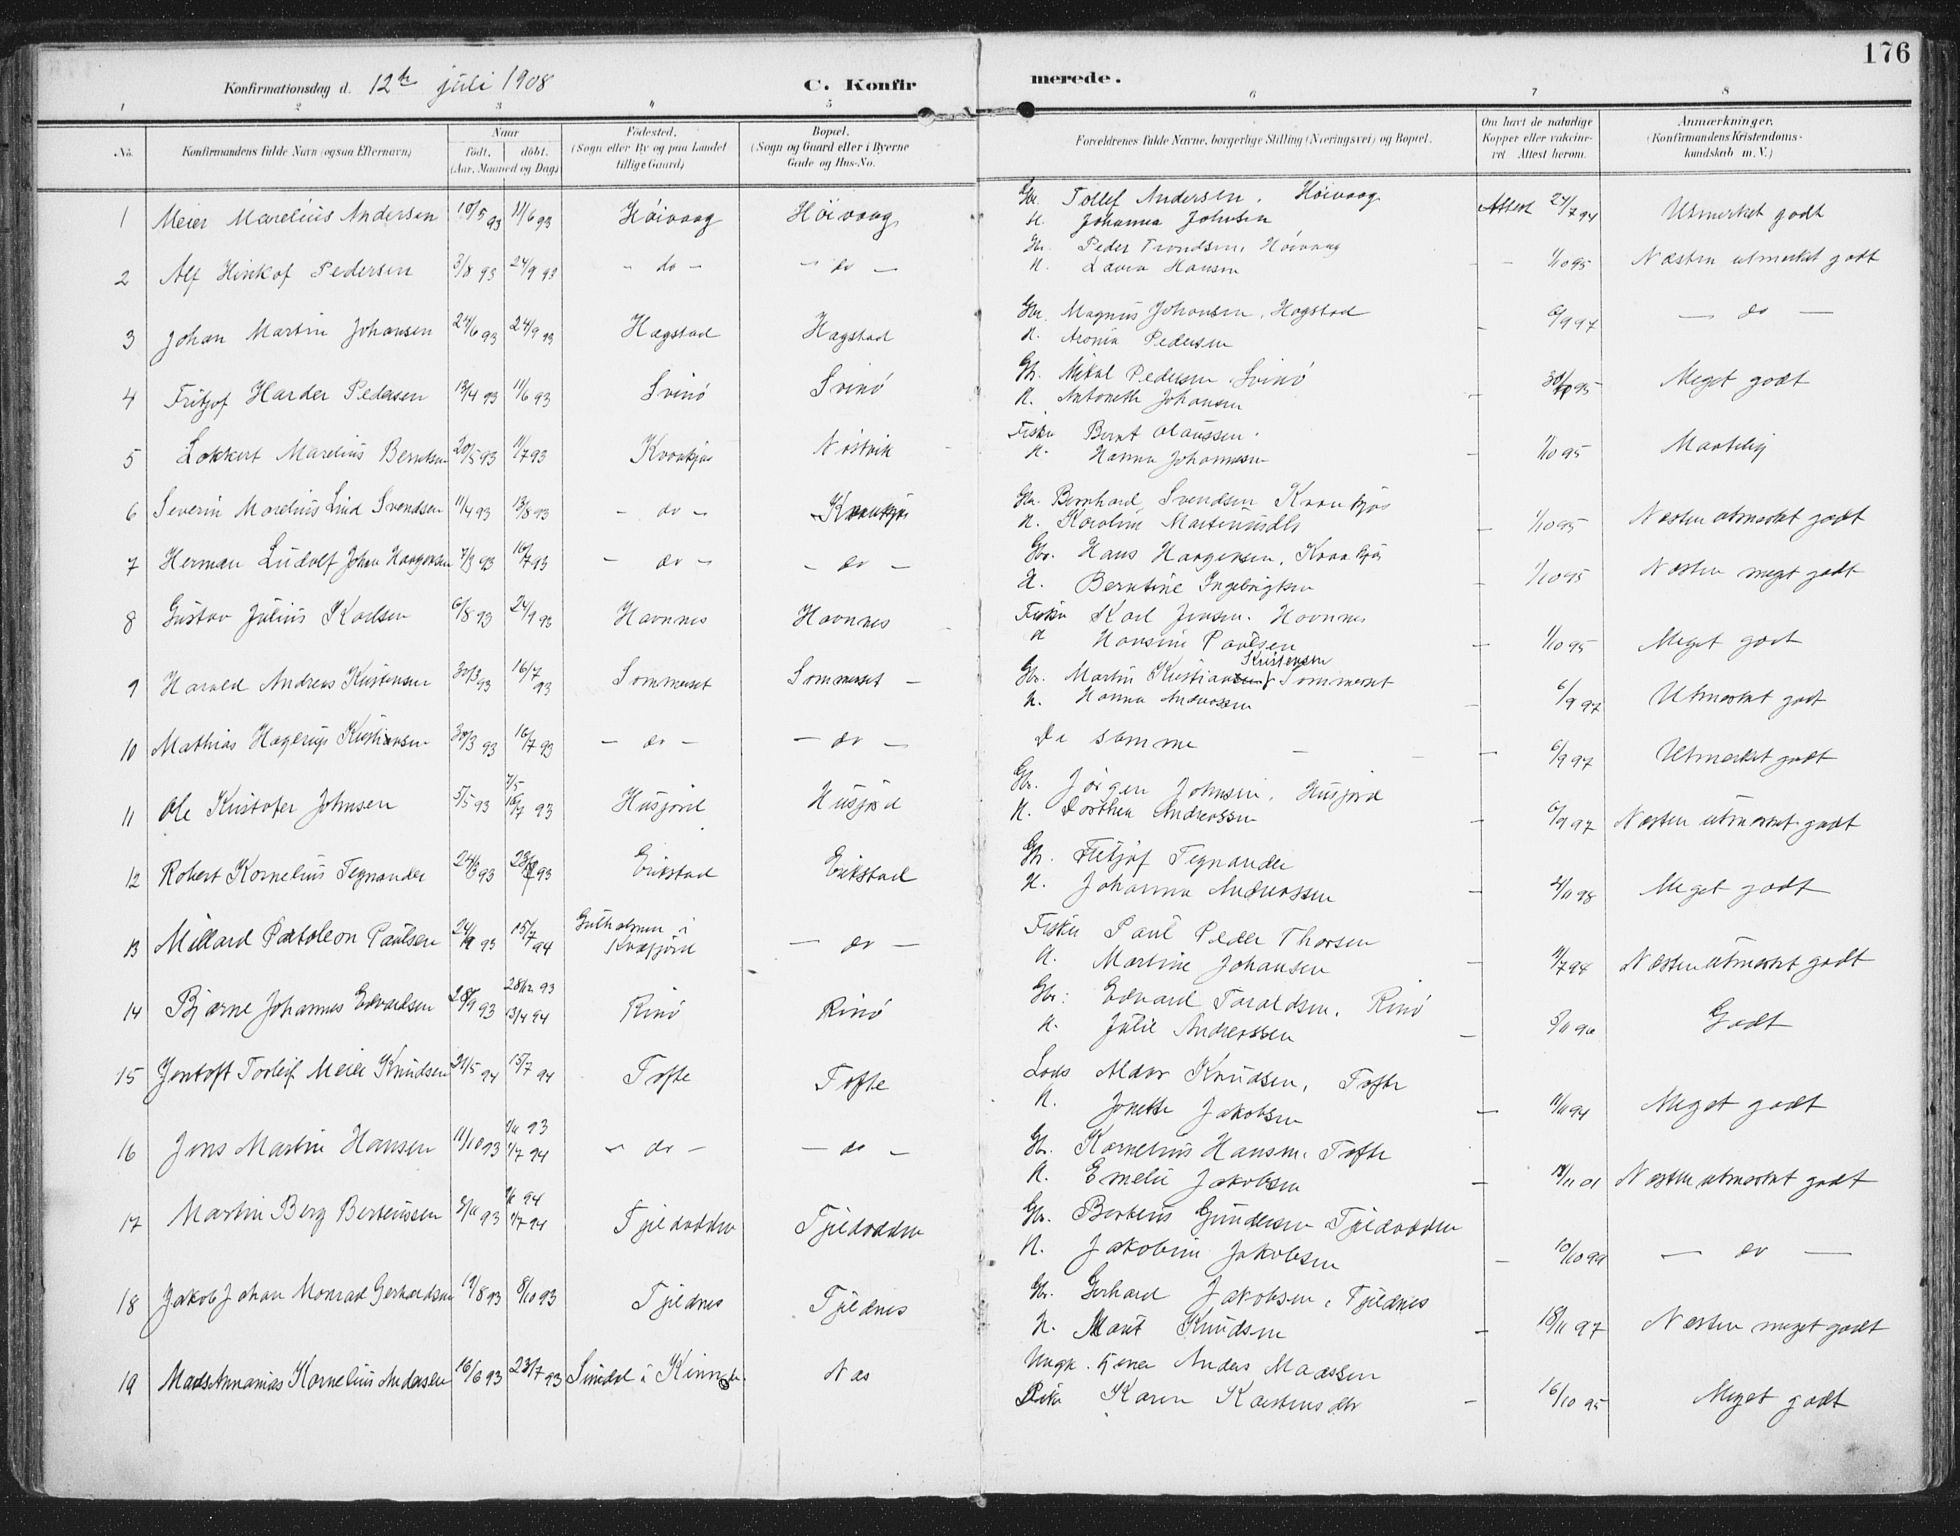 176
Konfirmationsdag d. 12te juli 1908
C. Konfirmerede.
1 2 3 4 5 6 7 8
No. Konfirmandens fulde Navn (ogsaa Efternavn) Naar födt. döbt. (Aar, Maaned og Dag) Födested. (Sogn eller By og paa Landet tillige Gaard) Bopæl. (Sogn og Gaard eller i Byerne Gade og Hus-No. Forældrenes fulde Navne, borgerlige Stilling (Næringsvei) og Bopæl. Om havt de naturlige Kopper eller vakcineret Attest herom. Anmærkninger. (Konfirmandens Kristendomskundskab m. V.)
1 Meier Marelius Andersen 10/5 93 11/6 93 Höivaag Höivaag Gbr. Tollef Andersen. Höivaag Attest 24/7 94 Utmerket godt
H. Johanna Johnsen
2 Alf Hinkof Pedersen 3/8 93 24/9 93 - do - - do - Gbr. Peder Trondsen, Höivaag - - 1/10 95 Næsten utmerket godt
H. Lavra Hansen
3 Johan Martin Johansen 24/6 93 24/9 93 Hagstad Hagstad Gbr. Magnus Johansen, Hagstad - 6/9 97 - do -
H. Aronia Pedersen
4 Fritjof Harder Pedersen 13/4 93 11/6 93 Svinö Svinö Gbr. Mikal Pedersen, Svinö - 95 Meget godt
H. Antonette Johansen
5 Lokkert Marelius Berntsen 20/5 93 11/7 93 Kvaakjös Nöstvik Fisker Bernt Olaussen. - 1/10 95 Maatelig
H. Hanna Johannesen
6 Severin Morelius Lind Svendsen 11/4 93 13/8 93 - do - Kraakjös Gbr. Bernhard Svendsen Kraakjös - 1/10 95 Næsten utmerket godt
H. Karoline Martinusdtr
7 Herman Ludolf Johan Haagensen 7/3 93 16/7 93 - do - - do - Gbr. Hans Haagensen, Kraakjös 1/10 95 Næsten meget godt
H. Berntine Ingebrigtsen
8 Gustav Julius Karlsen 6/8 93 24/9 93 Havnnes Havnnes Fisker Karl Jensen. Havnnes - 1/10 95 Meget godt
H Hansine Paulsen
9 Harald Andreas Kristensen 30/3 93 16/7 93 Sommerset Sommerset - Gbr. Martin Kristiansen Kristensen Sommerset - 6/9 97 Utmerket godt
H. Hanna Anderssen
10 Mathias Hagerup Kristiansen 30/3 93 16/7 93 - do - - do - De samme - - - 6/9 97 Utmerket godt
11 Ole Kristofer Johnsen 5/5 93 7/5 16/7 93 Husjord Husjord Gbr. Jörgen Johnsen, Husjord - 6/9 97 Næsten utmerket godt
H. Dorthea Anderssen
12 Robert Kornelius Tegnander 24/3 93 93 Erikstad Erikstad Gbr. Fritjof Tegnander - 98 Meget godt
H. Johanna Anderssen
13 Millard Partoleon Paulsen 93 15/7 94 Gulholmen i Kvæfjord - do - Fisker Paul Peder Thorsen - Næsten utmerket godt
H. Martine Johansen
14 Bjarne Johannes Edvardsen 28/9 93 28/12 93 13/4 94 Rinö Rinö Gbr. Edvard Taraldsen. Rinö - 96 Godt
H. Julie Anderssen
15 Jentoft Torleif Meier Knudsen 21/5 94 15/7 94 Tofte Tofte Lods Aldor Knudsen, Tofte - 94 Meget godt
H. Jonette Jakobsen
16 Jens Martin Hansen 11/10 93 93 1/7 94 - do - - do - Gbr. Kornelius Hansen, Tofte - 01 Næsten utmerket godt
H. Emelie Jakobsen
17 Martin Berg Bertenssen 93 94 1/7 94 Tjeldodden Tjeldodden Gbr. Berteus Gundersen Tjeldodden - 10/10 99 - do -
H. Jakobine Jakobsen
18 Jakob Johan Monrad Gerhardsen 19/8 93 8/10 93 Tjeldnes Tjeldnes Gbr. Gerhard Jakobsen, Tjeldnes - 18/11 97 Næsten meget godt
H. Marit Knudsen
19 Mads Annanias Kornelius Andersen 16/6 93 23/7 93 i Nes Ungk. Anders Madssen - 16/10 95 Meget godt
Pike Karen Karstensdtr